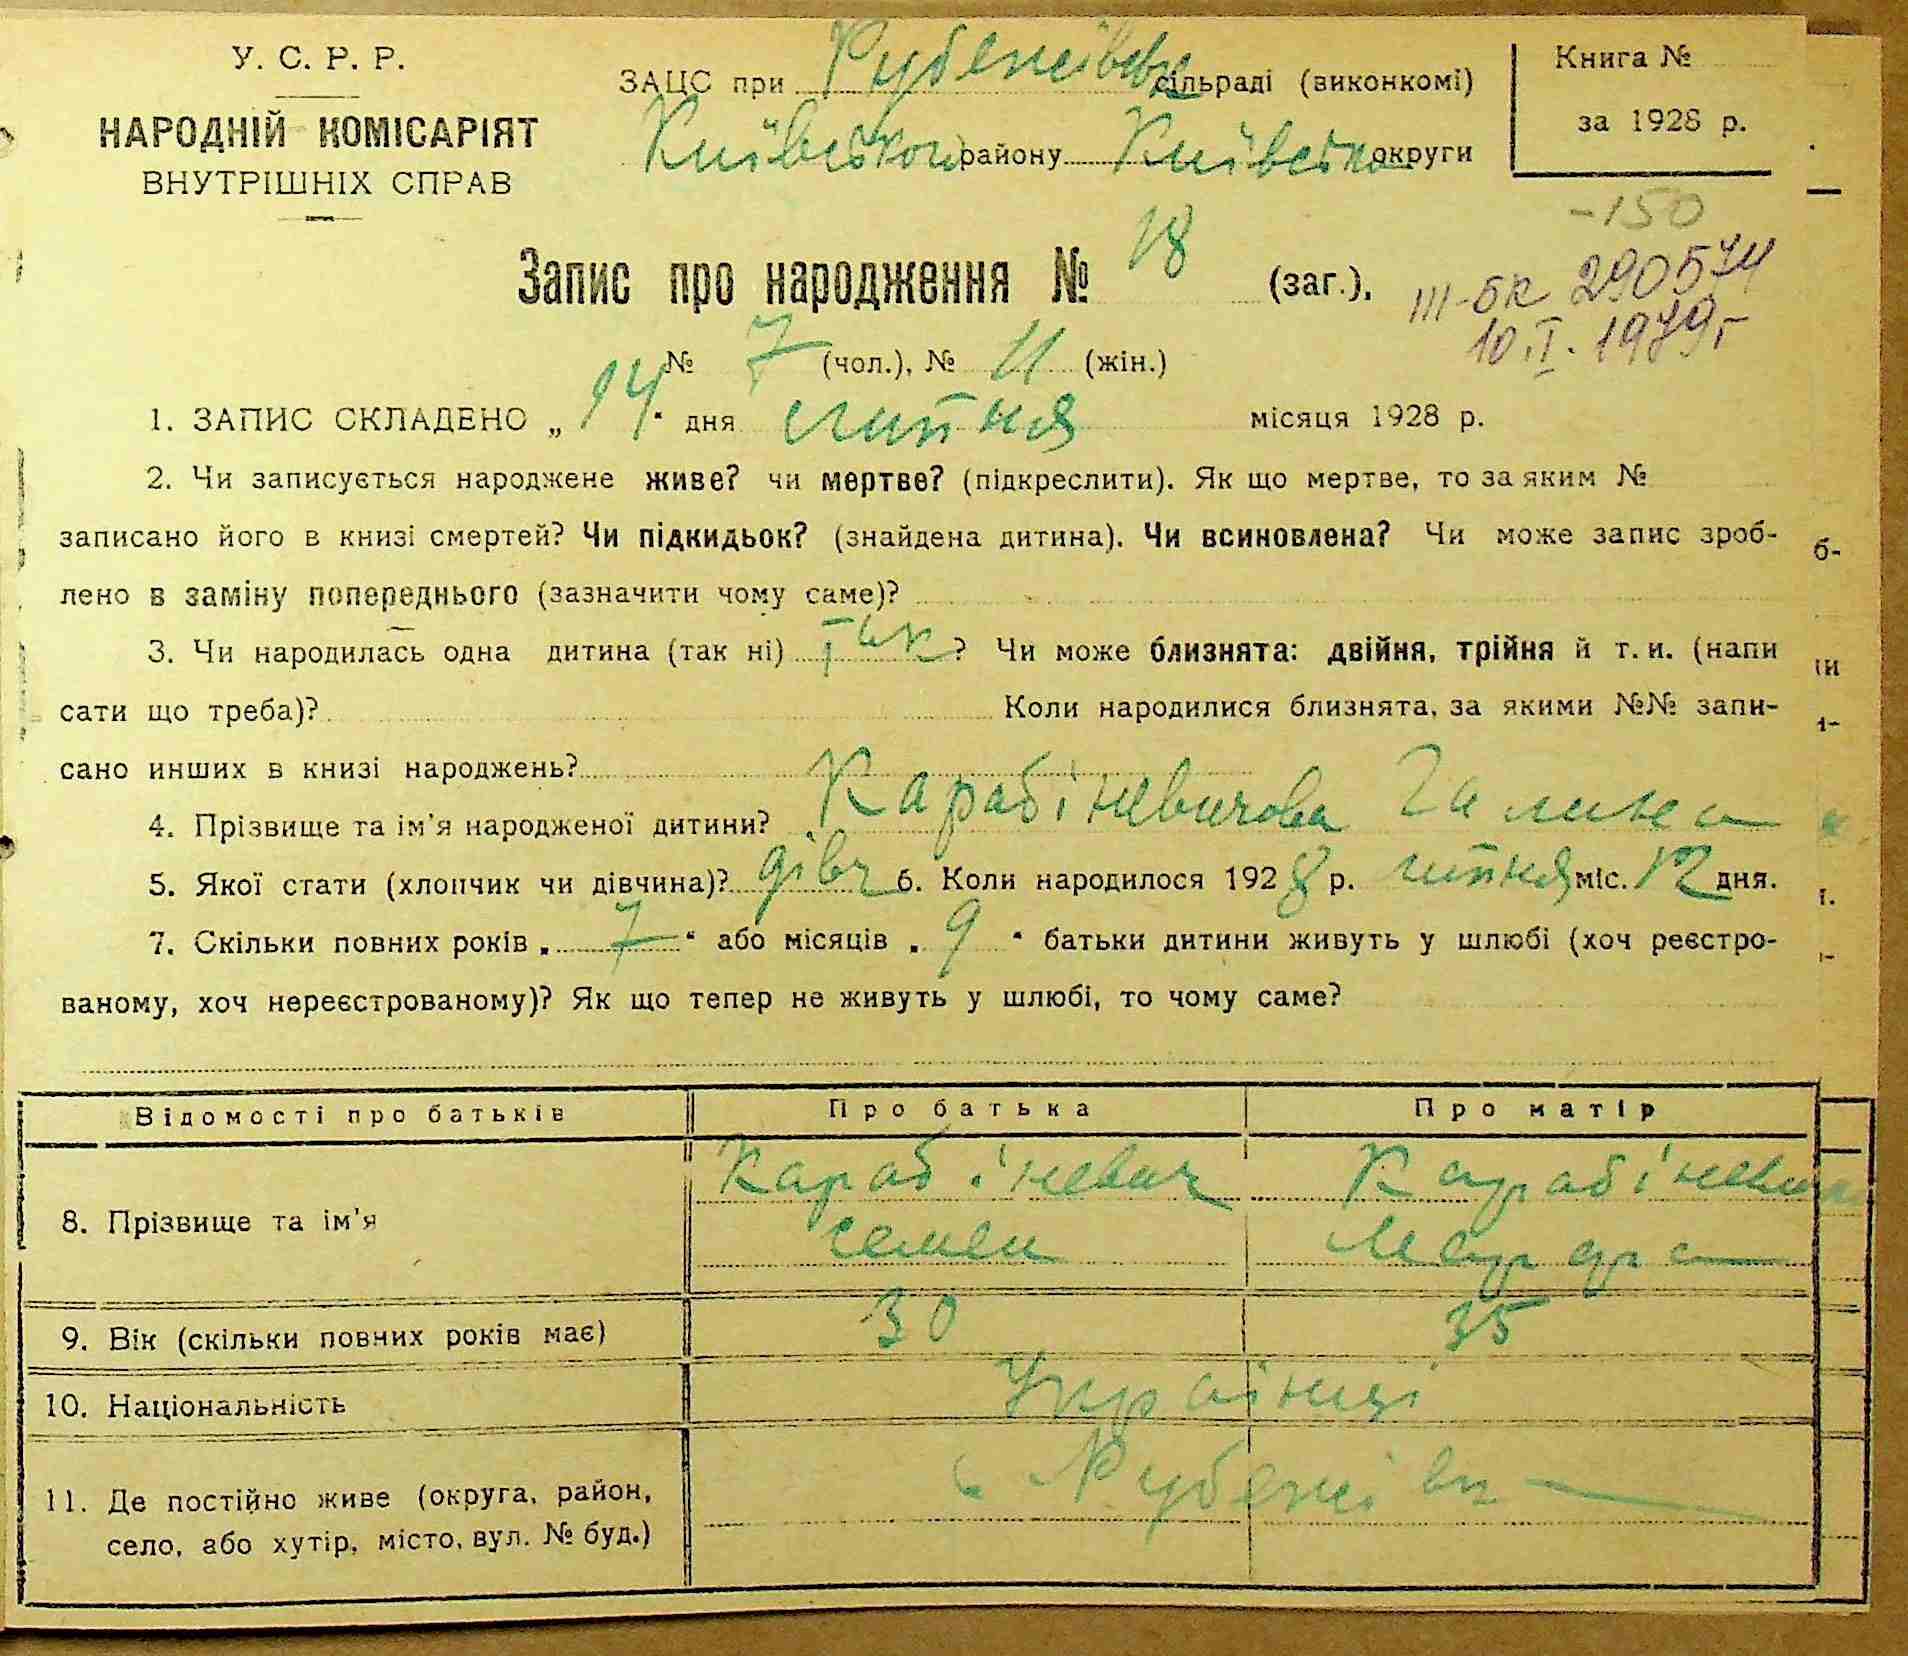 У. С. Р. Р.
НАРОДНІЙ КОМІСАРІЯТ
ВНУТРІШНІХ СПРАВ
ЗАЦС при Рубежівськ сільраді (виконкомі)
Київського району Київсько округи
Книга №
за 1928 р.
-150
Запис про народження № 18 (заг.),
III-БК 290574
10.I.1979г
№ 7 (чол.), № 11 (жін.)
1. ЗАПИС СКЛАДЕНО „ 14 “ дня липня місяця 1928 р.
2. Чи записується народжене живе? чи мертве? (підкреслити). Як що мертве, то за яким №
записано його в книзі смертей? Чи підкидьок? (знайдена дитина). Чи всиновлена? Чи може запис зроб-
лено в заміну попереднього (зазначити чому саме)?
3. Чи народилась одна дитина (так ні) Так ? Чи може близнята: двійня, трійня й т. и. (напи
сати що треба)? Коли народилися близнята, за якими №№ запи-
сано инших в книзі народжень?
4. Прізвище та ім’я народженої дитини? Карабіневичова Галина
5. Якої стати (хлопчик чи дівчина)? дівч 6. Коли народилося 1928 р. липня міс. 12 дня.
7. Скільки повних років „ 7 “ або місяців „ 9 “ батьки дитини живуть у шлюбі (хоч реєстро-
ваному, хоч нереєстрованому)? Як що тепер не живуть у шлюбі, то чому саме?
Відомості про батьків Про батька Про матір
8. Прізвище та ім’я Карабіневич Карабіневич
Семен
9. Вік (скільки повних років має) 30 35
10. Національність Українці
11. Де постійно живе (округа, район, с. Рубежівка
село, або хутір, місто, вул. № буд.)